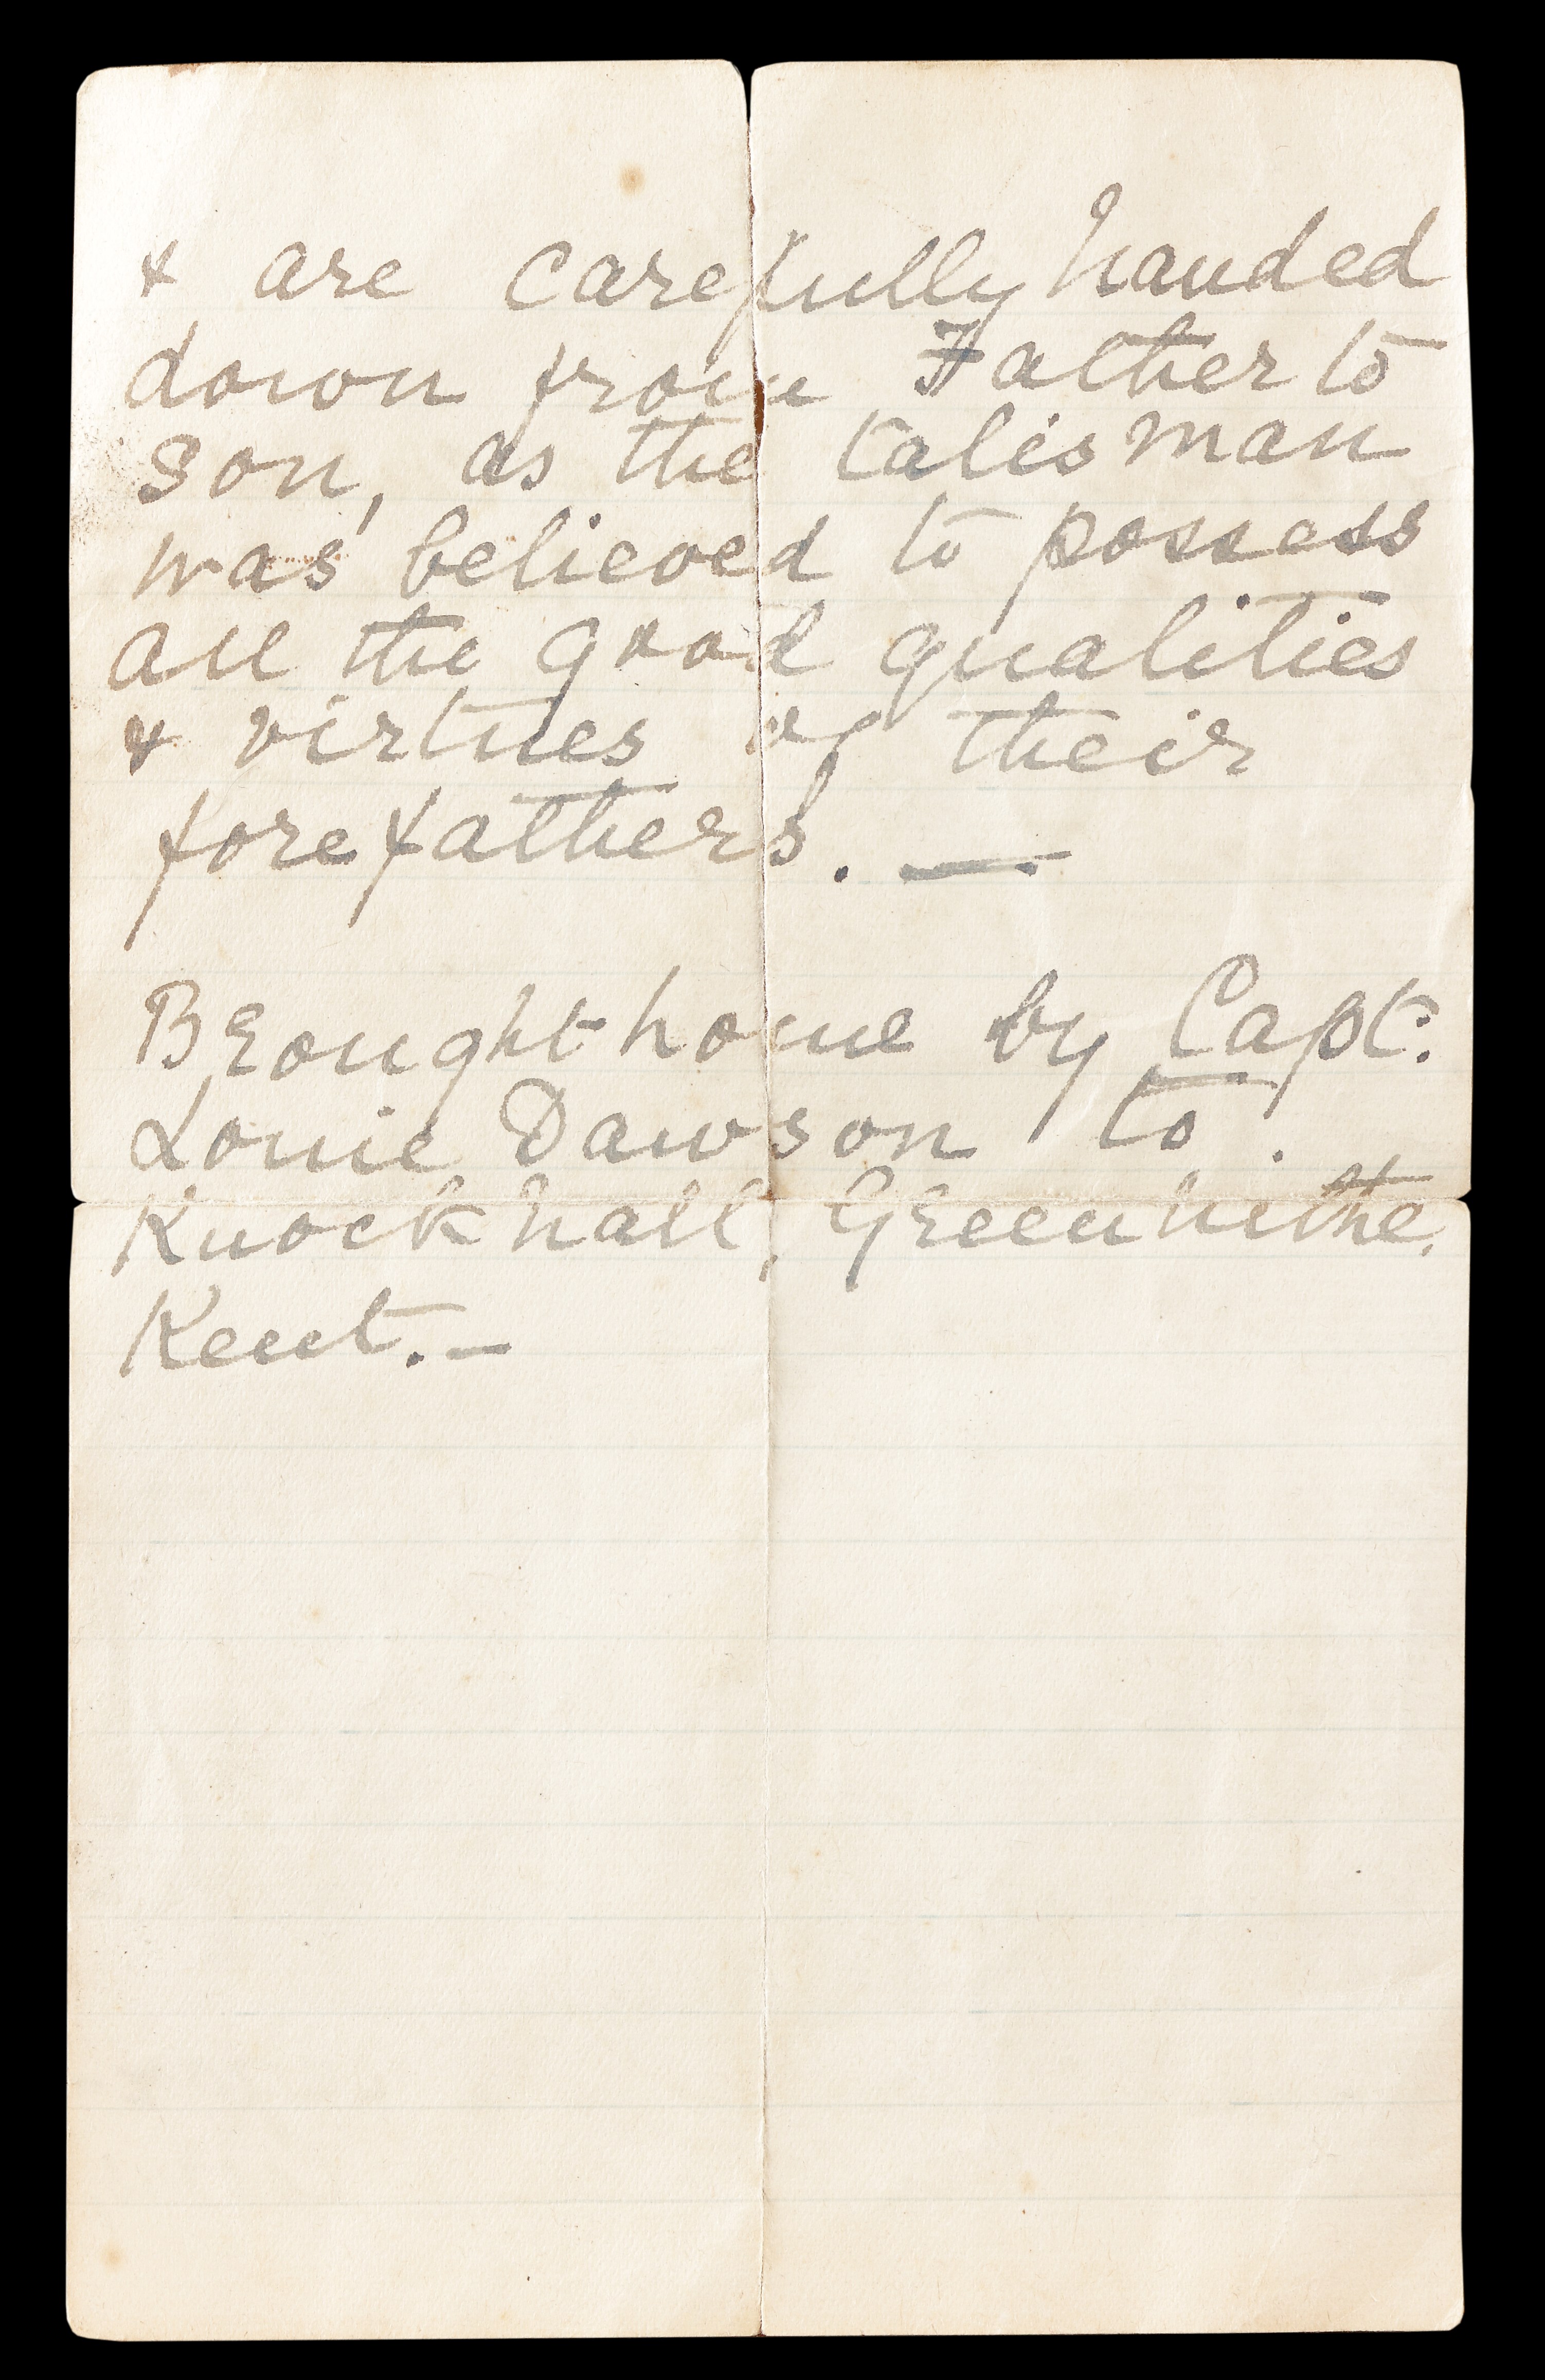 & are carefully handed
down from Father to
son, as the talisman
was believed to possess
all the good qualities
& virtues of their
forefathers. —
Brought home by Capt.
Louie Dawson to
Knockhall, Greenhithe,
Kent. —